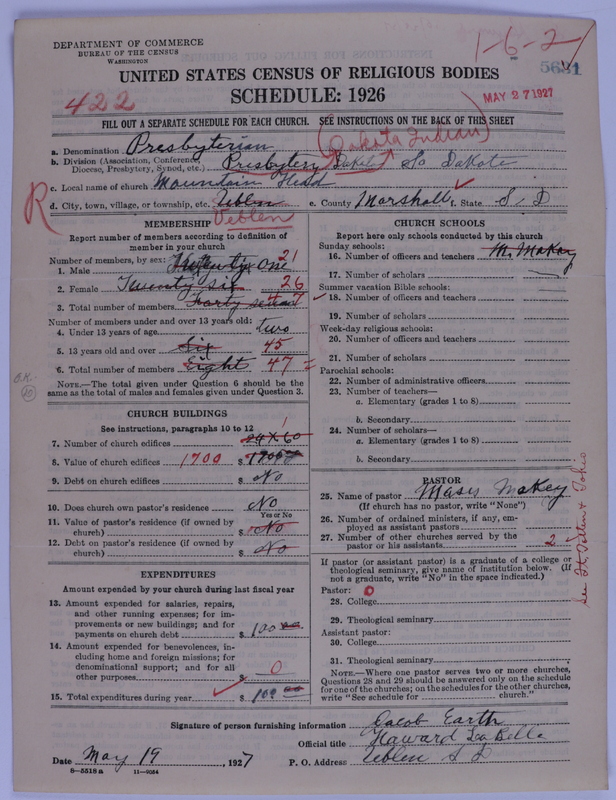 DEPARTMENT OF COMMERCE
BUREAU OF THE CENSUS
WASHINGTON
1-6-2
5631
UNITED STATES CENSUS OF RELIGIOUS BODIES
SCHEDULE: 1926
422
MAY 27 1927
FILL OUT A SEPARATE SCHEDULE FOR EACH CHURCH. SEE INSTRUCTIONS ON THE BACK OF THIS SHEET
(Dakota Indian)
a. Denomination Presbyterian
b. Division (Association, Conference, Diocese, Presbytery, Synod, etc.) Presbytery So Dakota
c. Local name of church Mountain Head
R
d. City, town, village, or township, etc. Veblen
e. County Marshall
f. State S. D
Veblen
MEMBERSHIP
Report number of members according to definition of
member in your church
Number of members, by sex:
1. Male Twenty one 21
2. Female Twenty six 26
3. Total number of members Forty seven 47
Number of members under and over 13 years old:
4. Under 13 years of age two
5. 13 years old and over Six 45
6. Total number of members Eight 47
NOTE.—The total given under Question 6 should be the
same as the total of males and females given under Question 3.
CHURCH BUILDINGS
See instructions, paragraphs 10 to 12
1
7. Number of church edifices 24 x 60
8. Value of church edifices 1700 $ 1700
9. Debt on church edifices $ No
10. Does church own pastor's residence No
Yes or No
11. Value of pastor's residence (if owned by
church) $ No
12. Debt on pastor's residence (if owned by
church) $ No
EXPENDITURES
Amount expended by your church during last fiscal year
13. Amount expended for salaries, repairs,
and other running expenses; for im-
provements or new buildings; and for
payments on church debt $ 100 00
14. Amount expended for benevolences, in-
cluding home and foreign missions; for
denominational support; and for all
other purposes $ 0
15. Total expenditures during year $ 100 00
CHURCH SCHOOLS
Report here only schools conducted by this church
Sunday schools:
16. Number of officers and teachers M. McKay
17. Number of scholars
Summer vacation Bible schools:
18. Number of officers and teachers
19. Number of scholars
Week-day religious schools:
20. Number of officers and teachers
21. Number of scholars
Parochial schools:
22. Number of administrative officers
23. Number of teachers—
a. Elementary (grades 1 to 8)
b. Secondary
24. Number of scholars—
a. Elementary (grades 1 to 8)
b. Secondary
PASTOR
25. Name of pastor Moses Makey
(If church has no pastor, write "None")
26. Number of ordained ministers, if any, em-
ployed as assistant pastors
27. Number of other churches served by the
pastor or his assistants 2
If pastor (or assistant pastor) is a graduate of a college or
theological seminary, give name of institution below. (If
not a graduate, write "No" in the space indicated.)
Pastor: 0
28. College
29. Theological seminary
Assistant pastor:
30. College
31. Theological seminary
NOTE.—Where one pastor serves two or more churches,
Questions 28 and 29 should be answered only on the schedule
for one of the churches; on the schedules for the other churches,
write "See schedule for church."
Signature of person furnishing information Jacob Earth
Official title Howard La Belle
Date May 19, 1927
P. O. Address Veblen S D
8-5518 a 11-9054